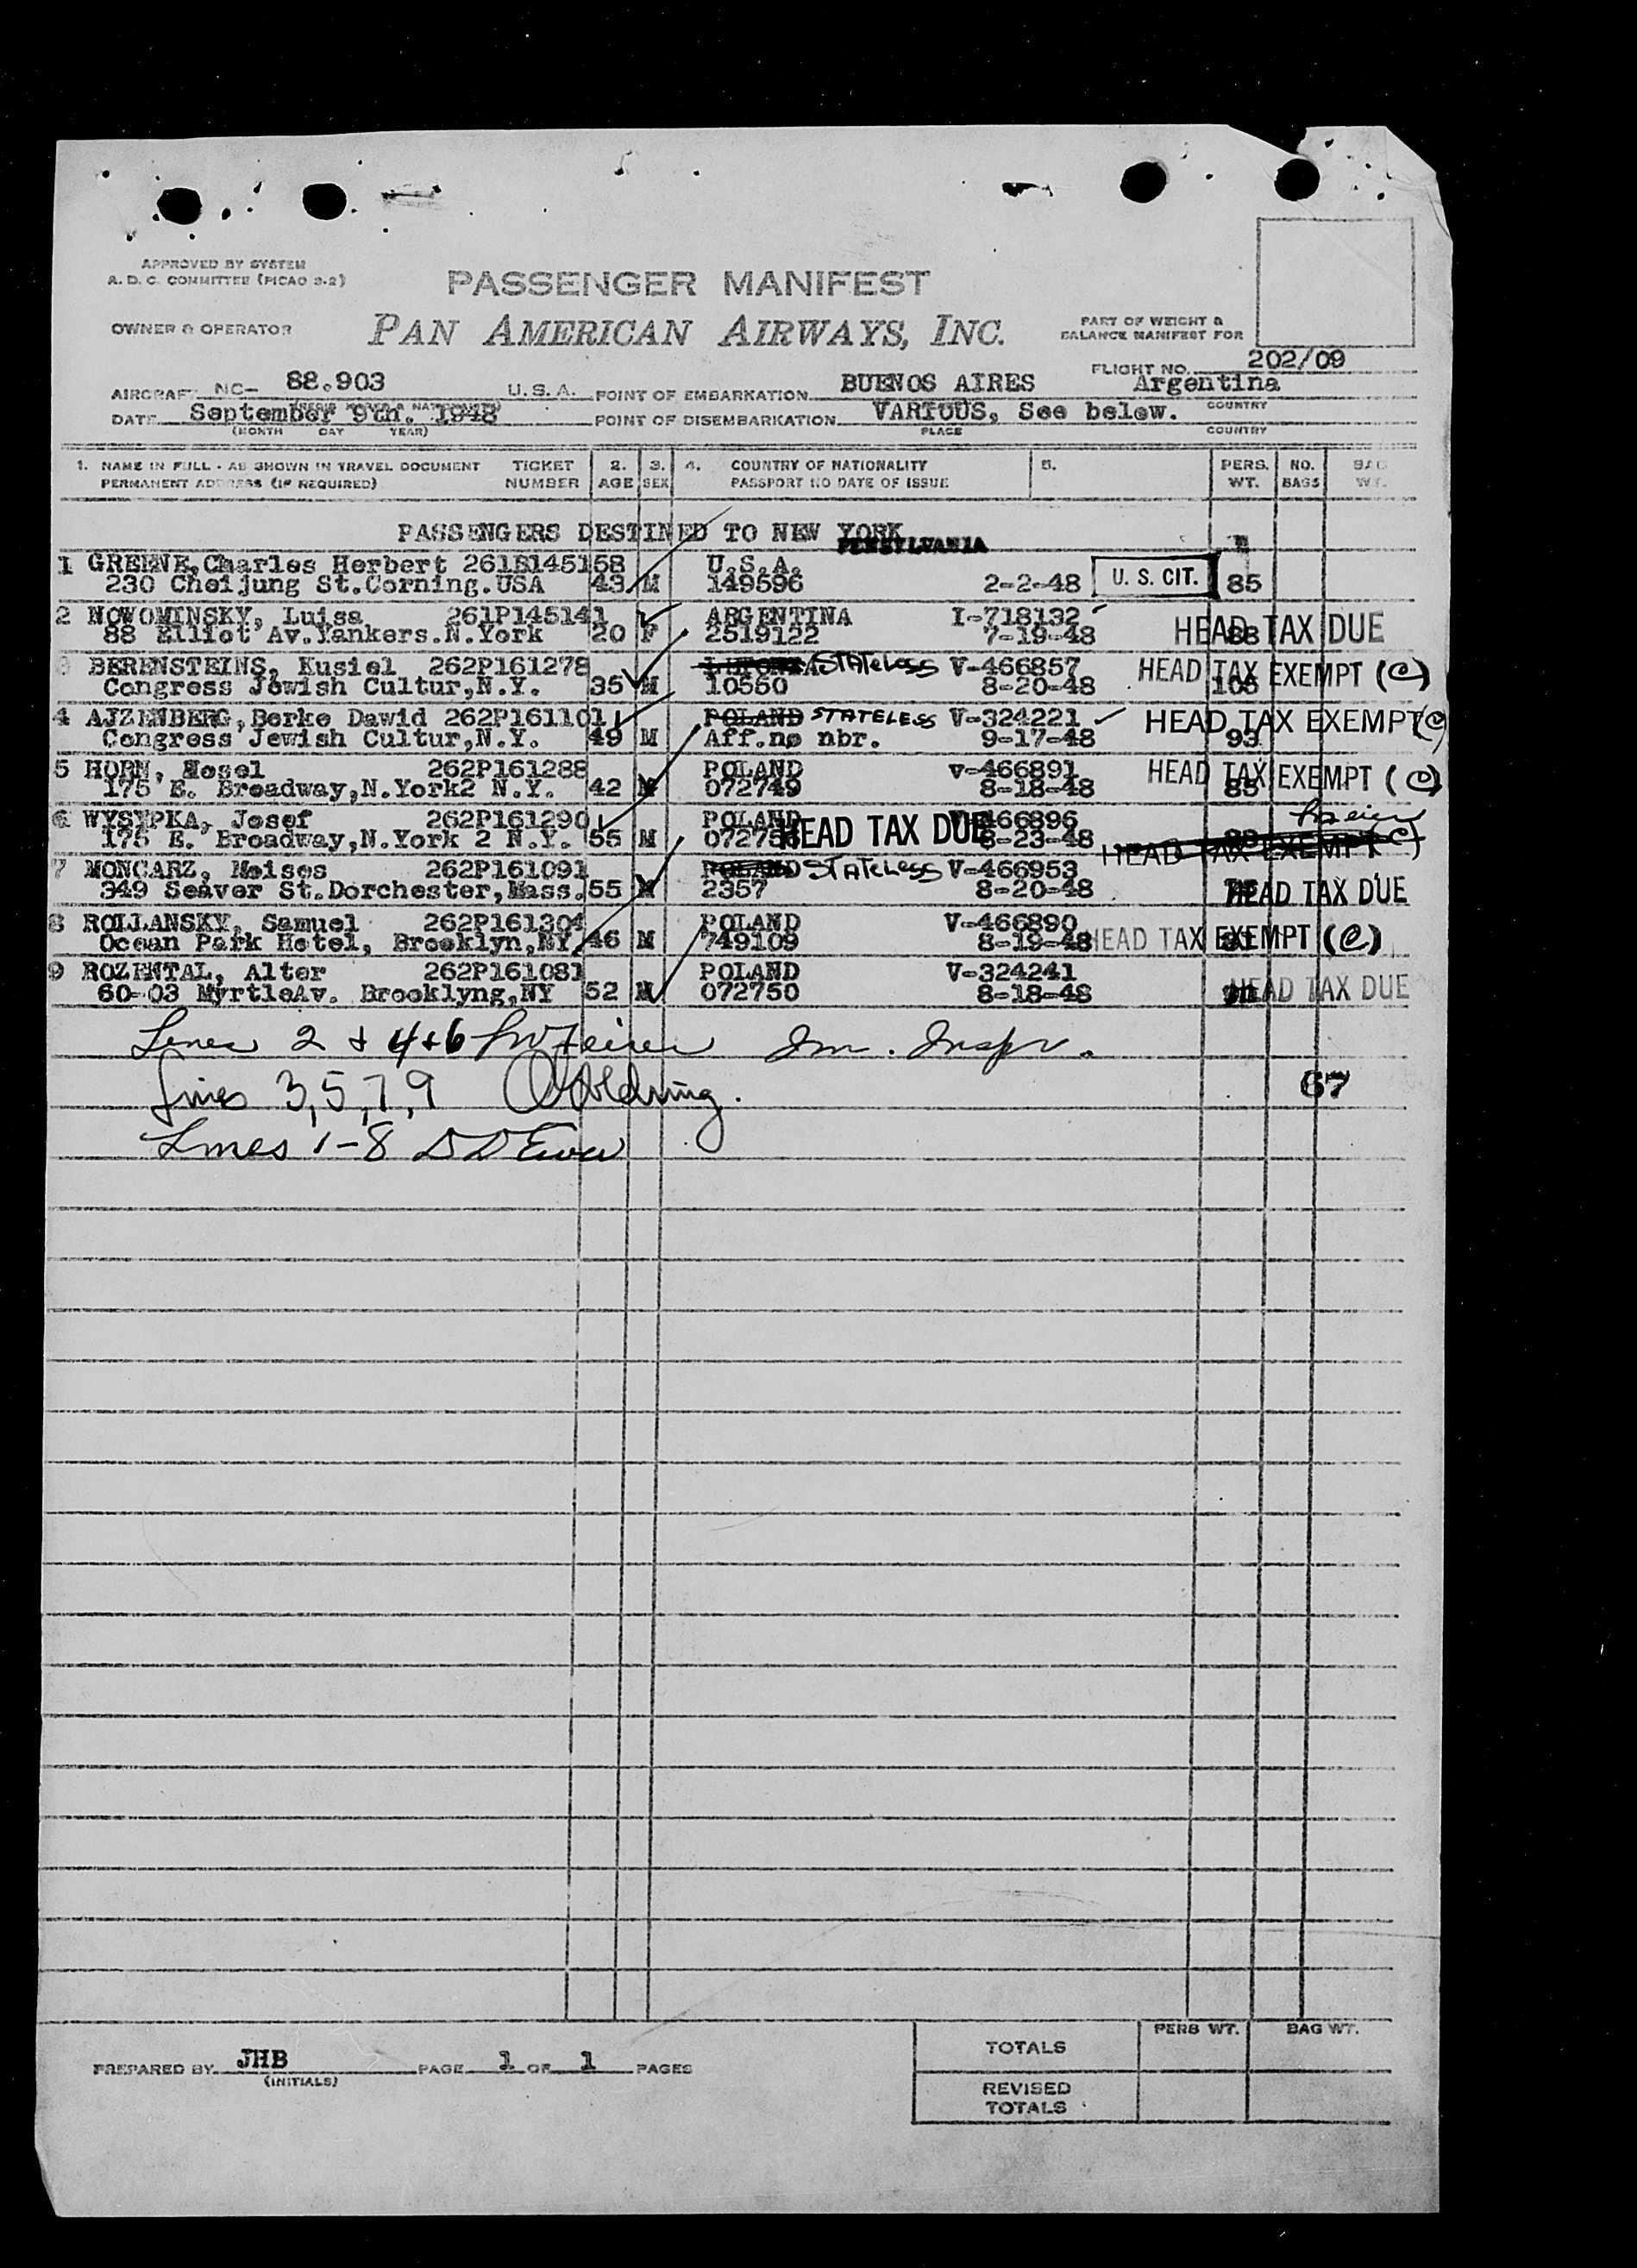 APPROVED BY SYSTEM
A. D. C. COMMITTEE (PICAO 3-2)
PASSENGER MANIFEST
OWNER & OPERATOR PAN AMERICAN AIRWAYS, INC. PART OF WEIGHT &
BALANCE MANIFEST FOR
FLIGHT NO. 202/09
AIRCRAFT NC- 88.903 U.S.A. POINT OF EMBARKATION BUENOS AIRES Argentina
DATE September 9th. 1948 POINT OF DISEMBARKATION VARIOUS, See below. COUNTRY
(MONTH DAY YEAR) PLACE COUNTRY
1. NAME IN FULL - AS SHOWN IN TRAVEL DOCUMENT TICKET 2. 3. 4. COUNTRY OF NATIONALITY 5. PERS. NO. BAG
PERMANENT ADDRESS (IF REQUIRED) NUMBER AGE SEX PASSPORT NO DATE OF ISSUE WT. BAGS WT.
PASSENGERS DESTINED TO NEW YORK
PENSYLVANIA
1 GREENE, Charles Herbert 261B145158 U.S.A.
230 Cheijung St.Corning.USA 43 M 149596 2-2-48 U. S. CIT. 85
2 NOWOMINSKY, Luisa 261P145141 ARGENTINA I-718132
88 Elliot Av.Yankers.N.York 20 F 2519122 7-19-48 HEAD TAX DUE
3 BERENSTEINS, Kusiel 262P161278 STATELESS V-466857 HEAD TAX EXEMPT (C)
Congress Jewish Cultur,N.Y. 35 M 10550 8-20-48 106
4 AJZENBERG, Berke Dawid 262P161101 POLAND STATELESS V-324221 HEAD TAX EXEMPT (C)
Congress Jewish Cultur,N.Y. 49 M Aff.no nbr. 9-17-48 93
5 HORN, Mosel 262P161288 POLAND V-466891 HEAD TAX EXEMPT (C)
175 E. Broadway,N.York2 N.Y. 42 M 072749 8-18-48 85
6 WYSYPKA, Josef 262P161290 POLAND V-466896
175 E. Broadway,N.York 2 N.Y. 55 M HEAD TAX DUE 8-23-48 88 HEAD TAX EXEMPT (C)
7 MONCARZ, Moises 262P161091 POLAND STATELESS V-466953
349 Seaver St.Dorchester,Mass. 55 M 2357 8-20-48 HEAD TAX DUE
8 ROLLANSKY, Samuel 262P161304 POLAND V-466890
Ocean Park Hotel, Brooklyn,NY 46 M 749109 8-19-48 HEAD TAX EXEMPT (C)
9 ROZENTAL, Alter 262P161081 POLAND V-324241
60-03 MyrtleAv. Brooklyng,NY 52 M 072750 8-18-48 HEAD TAX DUE
Lines 2 & 4+6 Im. Inspr.
Lines 3,5,7,9 67
Lines 1-8
PERS WT. BAG WT.
TOTALS
PREPARED BY JHB PAGE 1 OF 1 PAGES
(INITIALS)
REVISED
TOTALS